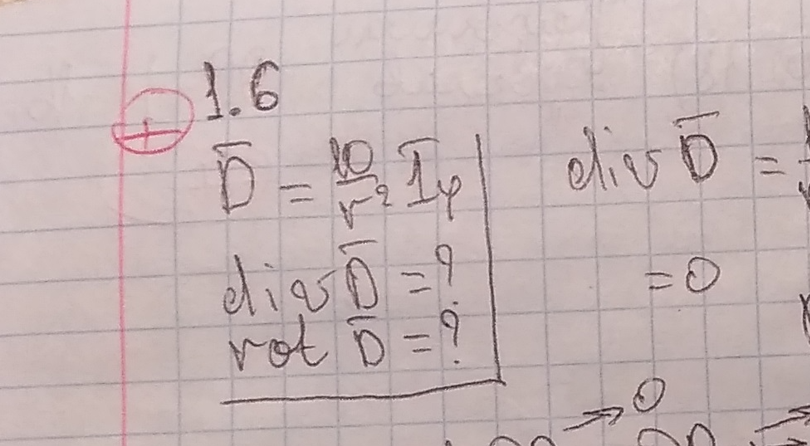 1.6
D̅ = 10/r² I̅φ
div D̅ = ?
rot D̅ = ?
div D̅ =
= 0
→ 0